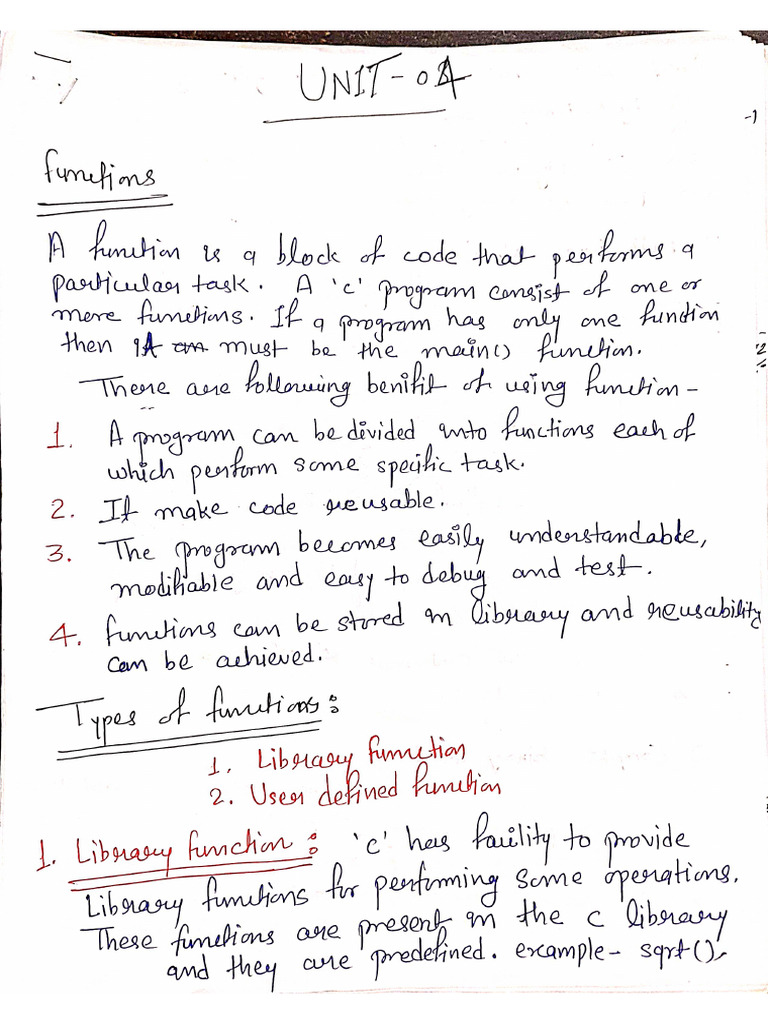 UNIT-04
-1
Functions
A function is a block of code that performs a
particular task. A 'c' program consist of one or
more functions. If a program has only one function
then it must be the main() function.
There are following benifit of using function -
1. A program can be divided into functions each of
which perform some specific task.
2. It make code reusable.
3. The program becomes easily understandable,
modifiable and easy to debug and test.
4. functions can be stored in library and reusability
can be achieved.
Types of functions:
1. Library function
2. User defined function
1. Library function: 'c' has facility to provide
Library functions for performing some operations.
These functions are present in the c library
and they are predefined. example- sqrt(),